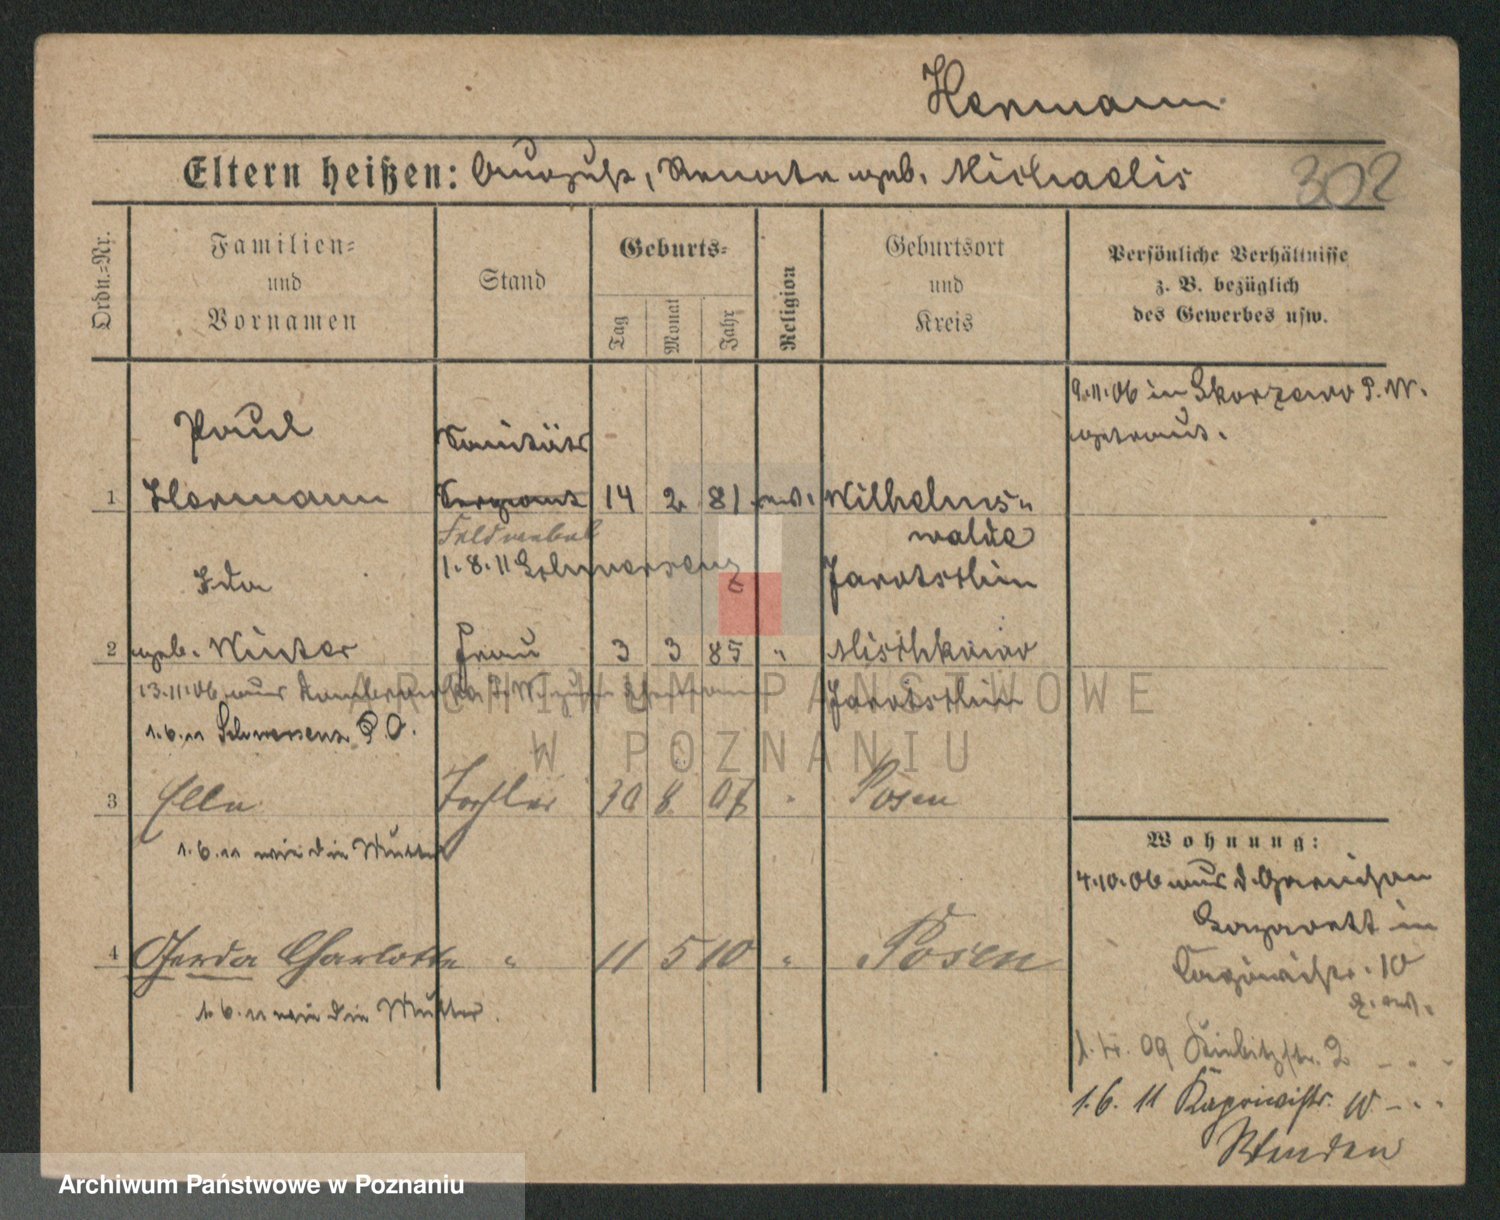 Hermann
302
Eltern heißen: August, Renate geb. Michaelis
Ordn.=Nr.
Familien=
und
Vornamen
Stand
Geburts=
Tag
Monat
Jahr
Religion
Geburtsort
und
Kreis
Persönliche Verhältnisse
z. B. bezüglich
des Gewerbes usw.
9.11.06 in Skorzewo P. W.
getraut.
Paul
Sanitäts
1 Hermann Sergeant 14 2 81 ev. Wilhelms-
Feldwebel walde
1.8.11 Schwersenz Jarotschin
Ida
2 geb. Winter Frau 3 3 85 " Mischkowo
13.11.06 aus P. W. zum Ehemann Jarotschin
1.6.11 Schwersenz P. O.
3 Ella Tochter 30 8 07 " Posen
1.6.11 wie die Mutter
4 Gerda Charlotte " 11 5 10 " Posen
1.6.11 wie die Mutter.
Wohnung:
4.10.06 aus d. Garnison
Lazarett in
10
z. erw.
09 Kiebitzstr. 2
1.6.11 Kapriwistr. 10
Wenden
ARCHIWUM PAŃSTWOWE
W POZNANIU
Archiwum Państwowe w Poznaniu